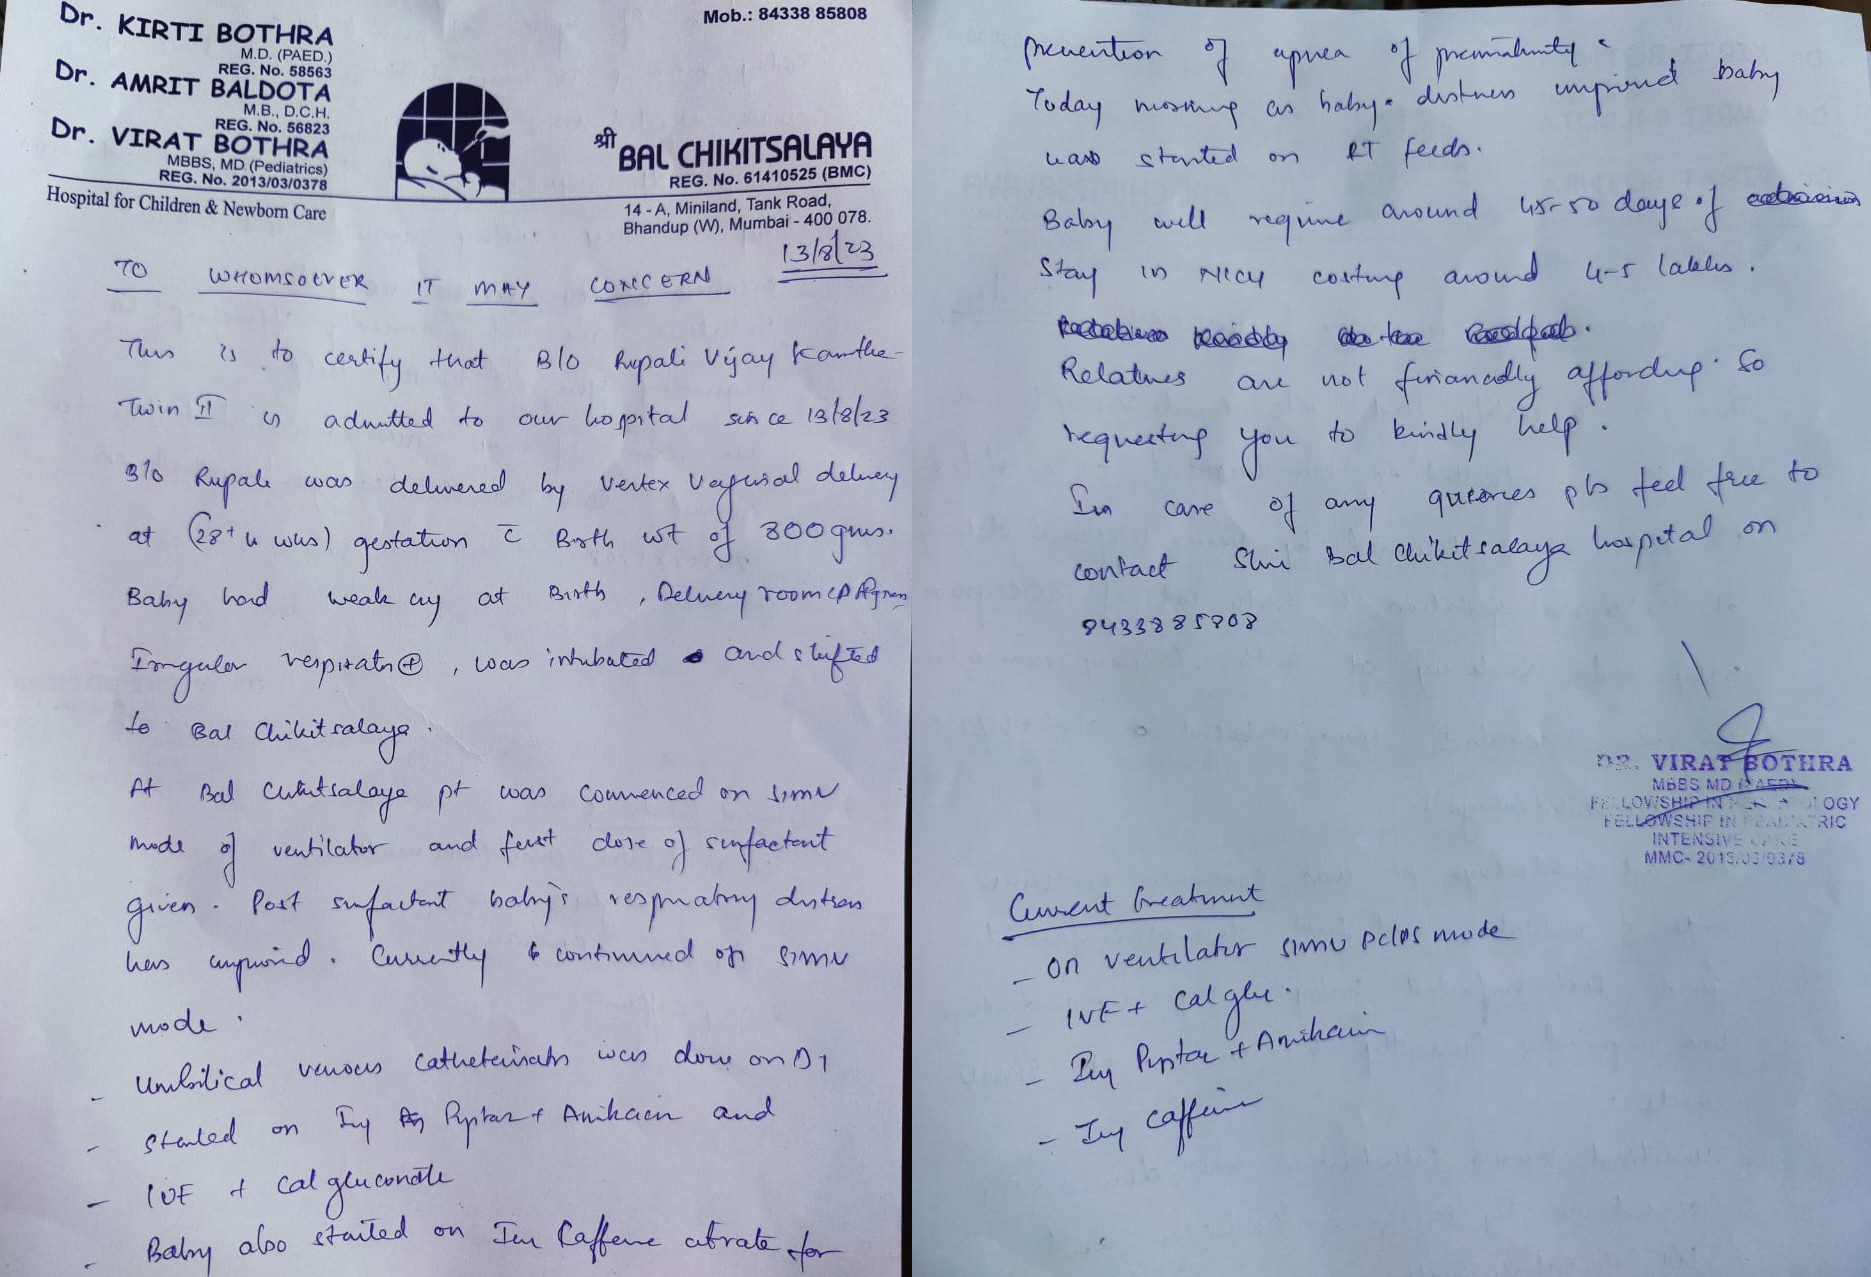 Dr. KIRTI BOTHRA
M.D. (PAED.)
REG. No. 58563
Dr. AMRIT BALDOTA
M.B., D.C.H.
REG. No. 56823
Dr. VIRAT BOTHRA
MBBS, MD (Pediatrics)
REG. No. 2013/03/0378
Hospital for Children & Newborn Care
Mob.: 84338 85808
श्री BAL CHIKITSALAYA
REG. No. 61410525 (BMC)
14 - A, Miniland, Tank Road,
Bhandup (W), Mumbai - 400 078.
13/8/23
TO WHOMSOEVER IT MAY CONCERN
This is to certify that B/O Rupali Vijay Kamthe-
Twin II is admitted to our hospital since 13/8/23
B/O Rupali was delivered by Vertex Vaginal delivery
at (28+4 wks) gestation c̄ Birth wt of 800 gms.
Baby had weak cry at Birth, Delivery room
Irregular respiratn ⊕, was intubated and shifted
to Bal Chikitsalaya.
At Bal Chikitsalaya pt was commenced on SIMV
mode of ventilator and first dose of surfactant
given. Post surfactant baby's respiratory distress
has improved. Currently continued on SIMV
mode.
- Umbilical venous catheterisatn was done on D1
- Started on Inj Piptaz + Amikacin and
- IVF + cal gluconate
- Baby also started on Inj Caffeine citrate for
prevention of apnea of prematurity.
Today morning as baby distress improved baby
was started on RT feeds.
Baby will require around 45-50 days of
Stay in NICU costing around 4-5 lakhs.
Relatives are not financially affording. So
requesting you to kindly help.
In case of any queries pls feel free to
contact Shri Bal Chikitsalaya hospital on
8433885808
DR. VIRAT BOTHRA
MBBS MD (PAED)
FELLOWSHIP IN NEONATOLOGY
FELLOWSHIP IN PEDIATRIC
INTENSIVE CARE
MMC- 2013/03/0378
Current treatment
- On ventilator SIMV PC/PS mode
- IVF + Cal glu.
- Inj Piptaz + Amikacin
- Inj Caffeine